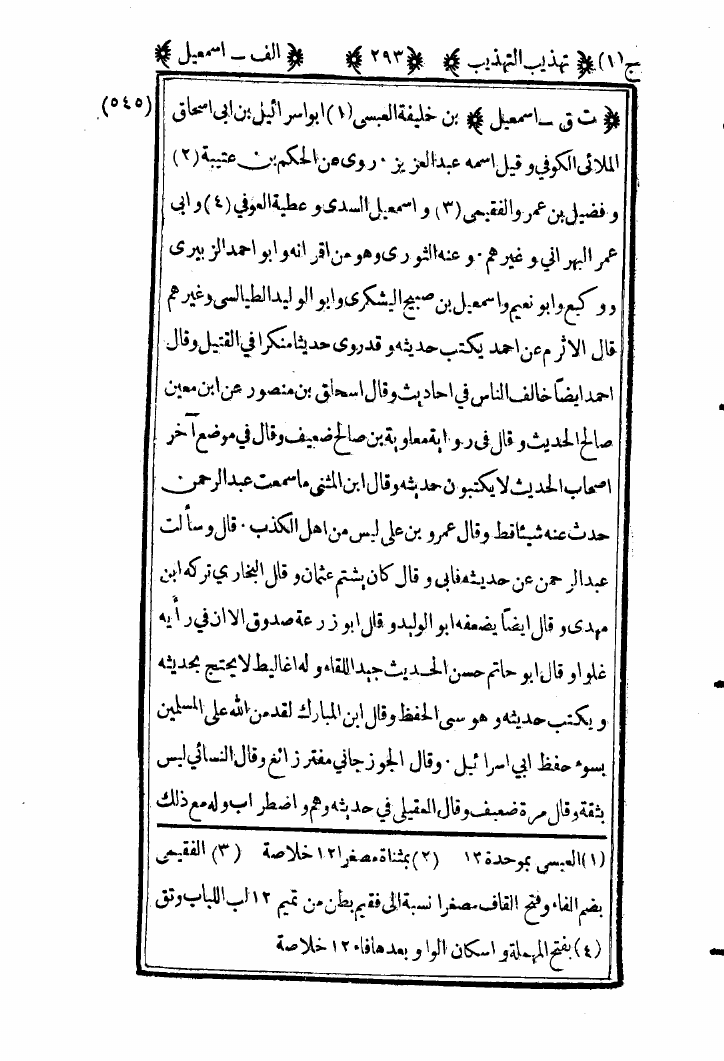 ج(١) ﴿ تهذيب التهذيب ﴾ ﴿٢٩٣﴾ ﴿ الف ــ اسمعيل ﴾
﴿ ت ق ــ اسمعيل ﴾ بن خليفة العبسى (١) ابو اسرائيل بن ابى اسحاق (٥٤٥)
الملائى الكوفي و قيل اسمه عبد العزيز . روى عن الحكم بن عتيبة (٢)
و فضيل بن عمر والفقيمى (٣) و اسمعيل السدى و عطية العوفي (٤) و ابى
عمر البهراني و غيرهم . و عنه الثورى وهو من اقرانه و ابو احمد الزبيرى
و وكيع وابو نعيم واسمعيل بن صبيح اليشكرى وابو الوليد الطيالسى وغيرهم
قال الاثرم عن احمد يكتب حديثه و قد روى حديثا منكرا في القتيل وقال
احمد ايضاً خالف الناس في احاديث وقال اسحاق بن منصور عن ابن معين
صالح الحديث و قال فى رواية معاوية بن صالح ضعيف وقال في موضع آخر
اصحاب الحديث لا يكتبون حديثه وقال ابن المثنى ما سمعت عبد الرحمن
حدث عنه شيئا قط وقال عمرو بن على ليس من اهل الكذب . قال وسألت
عبد الرحمن عن حديثه فابى و قال كان يشتم عثمان و قال البخاري تركه ابن
مهدى و قال ايضاً يضعفه ابو الوليد و قال ابو زرعة صدوق الا ان في رأيه
غلوا و قال ابو حاتم حسن الحديث جيد اللقاء و له اغاليط لا يحتج بحديثه
و يكتب حديثه و هو سى الحفظ وقال ابن المبارك لقد من الله على المسلمين
بسوء حفظ ابي اسرائيل . وقال الجوزجاني مفتر زائغ وقال النسائي ليس
بثقة وقال مرة ضعيف وقال العقيلى في حديثه وهم و اضطراب وله مع ذلك
(١) العبسى بموحدة ١٢ (٢) بمثناة مصغرا ١٢ خلاصة (٣) الفقيمى
بضم الفاء وفتح القاف مصغرا نسبة الى فقيم بطن من تميم ١٢ لب اللباب وتق
(٤) بفتح المهملة و اسكان الواو بعدها فاء ١٢ خلاصة